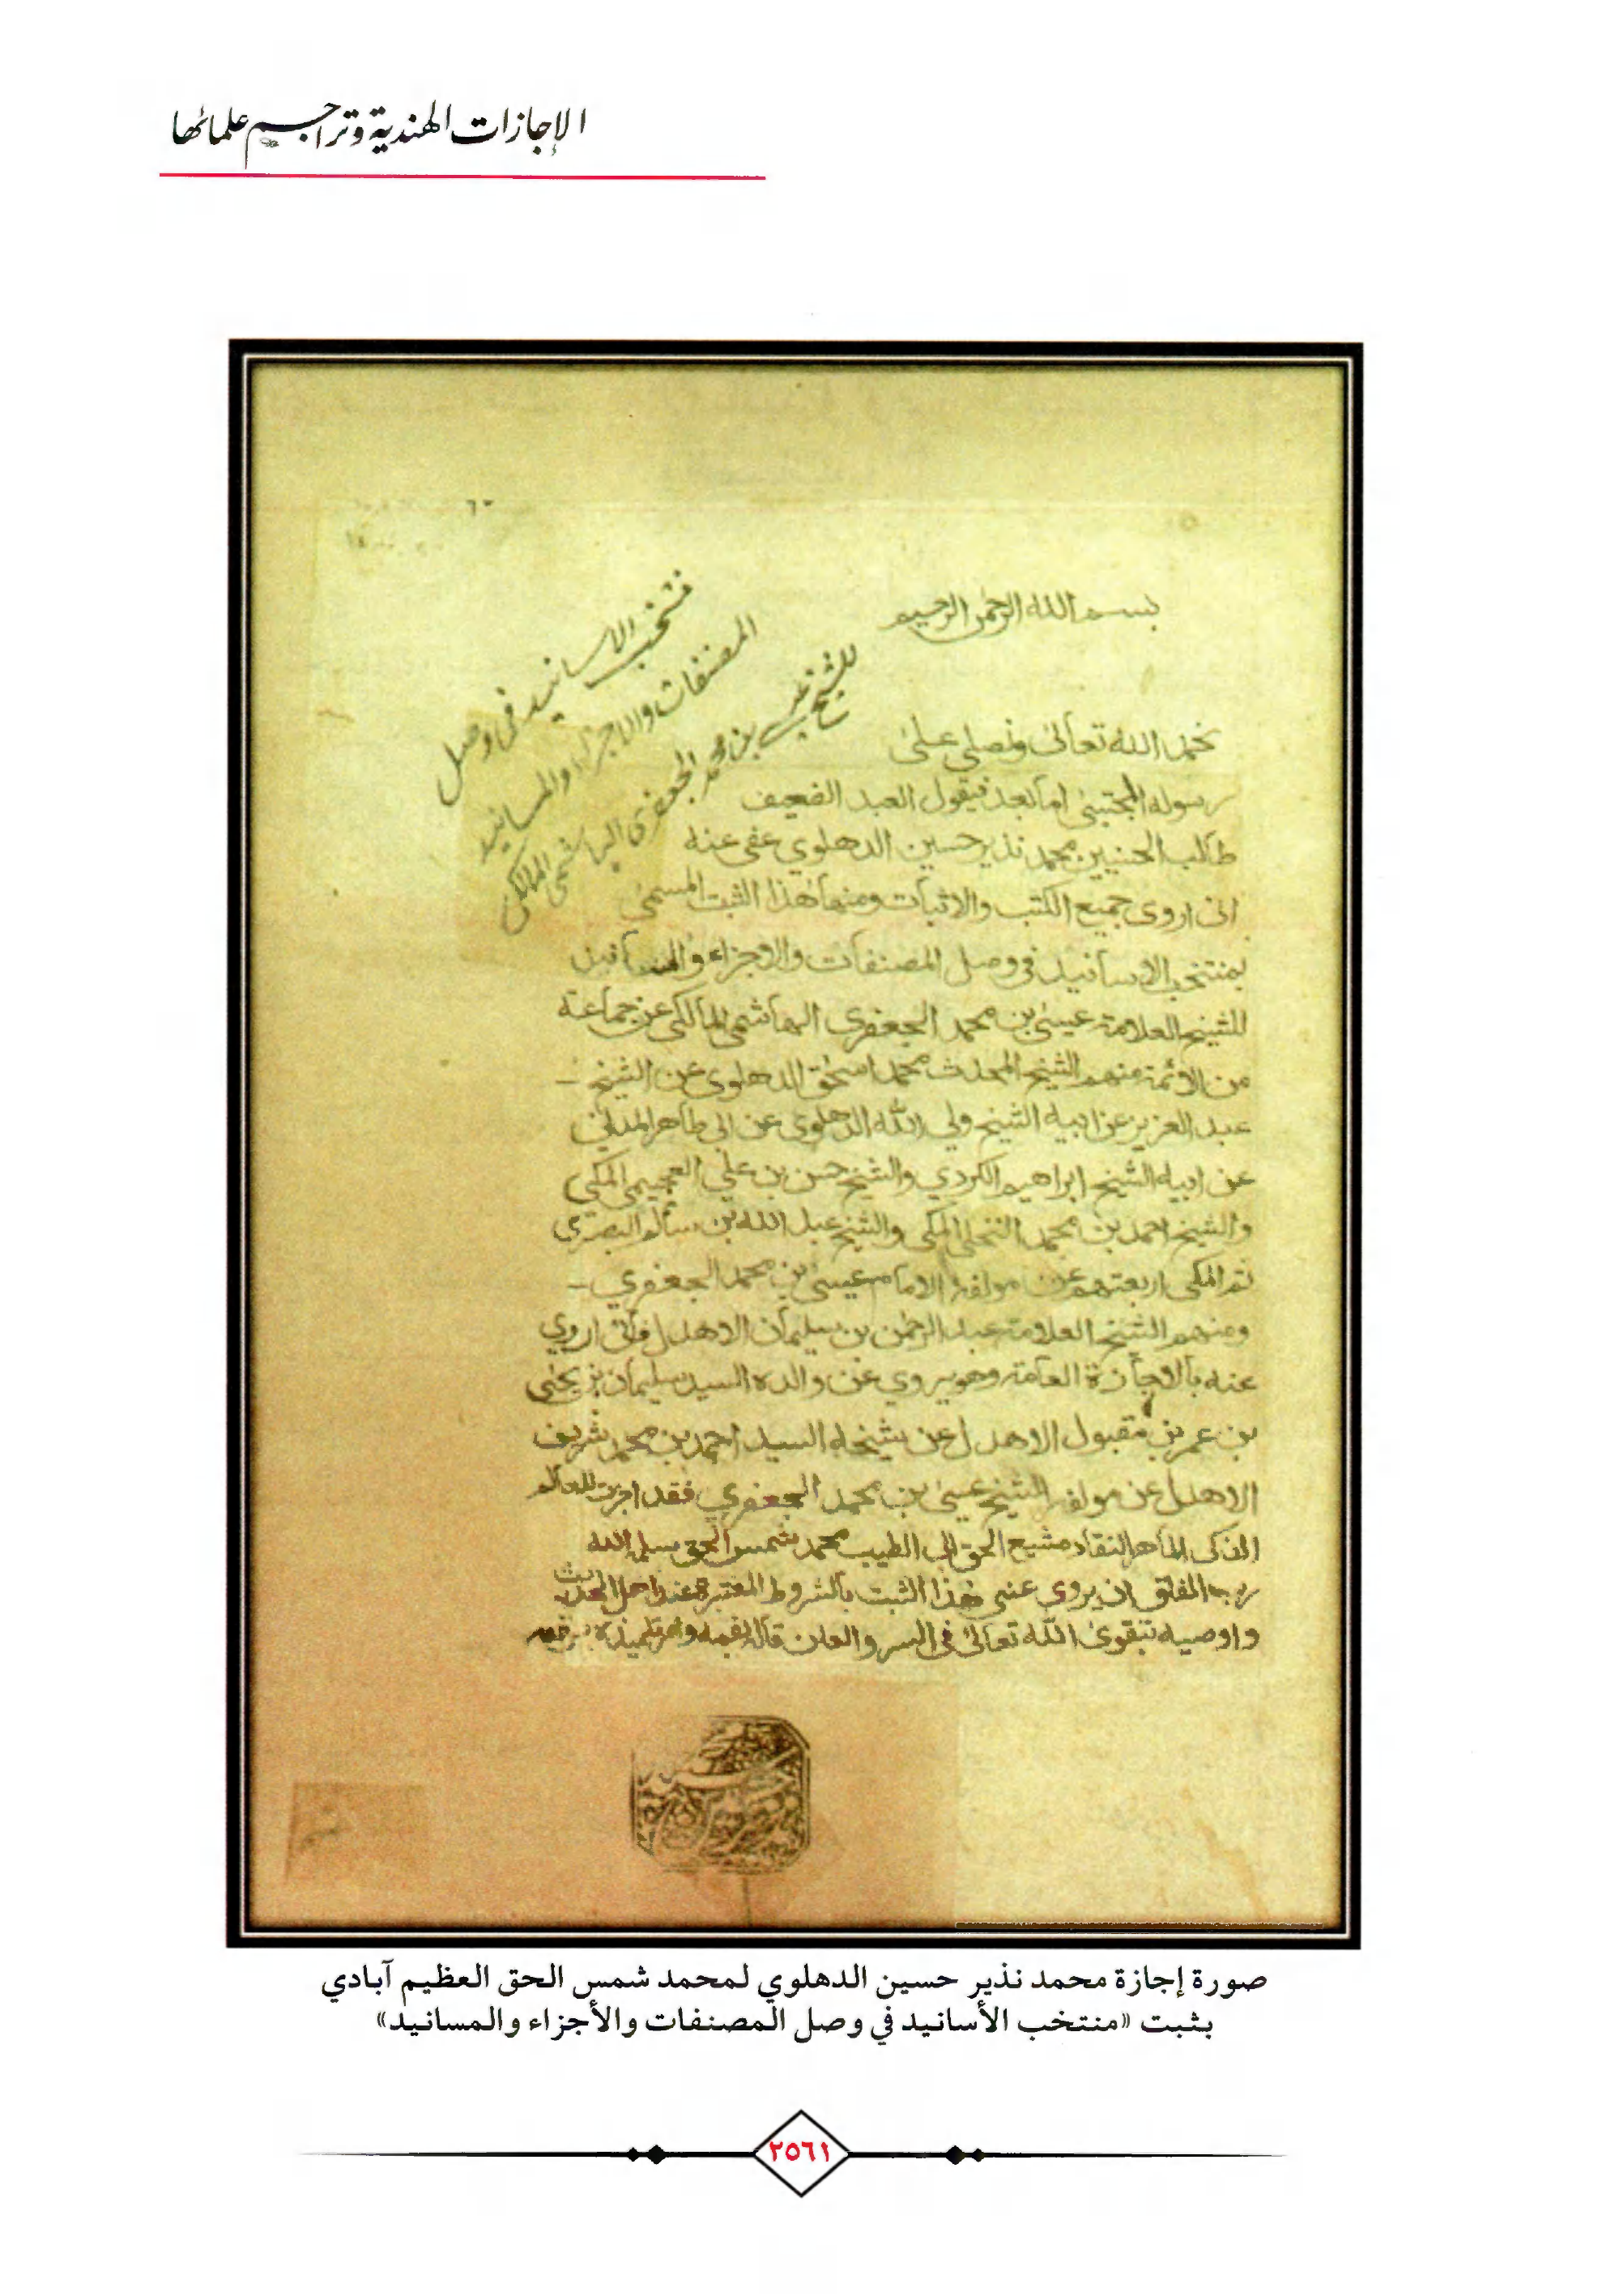 الإجازات الهندية وتراجم علمائها
بسم الله الرحمن الرحيم
منتخب الاسانيد في وصل
المصنفات والاجزاء والمسانيد
للشيخ عيسى بن محمد الجعفري الهاشمي المالكي
نحمد الله تعالى ونصلي على
رسوله المجتبى اما بعد فيقول العبد الضعيف
طالب الحسنيين محمد نذير حسين الدهلوي عفى عنه
انى اروى جميع الكتب والاثبات ومنها هذا الثبت المسمى
بمنتخب الاسانيد فى وصل المصنفات والاجزاء والمسانيد
للشيخ العلامة عيسى بن محمد الجعفرى الهاشمى المالكى عن جماعة
من الائمة منهم الشيخ المحدث محمد اسحق الدهلوى عن الشيخ
عبد العزيز عن ابيه الشيخ ولي الله الدهلوي عن ابى طاهر المدنى
عن ابيه الشيخ ابراهيم الكردي والشيخ حسن بن علي العجيمى المكي
والشيخ احمد بن محمد النخلى المكى والشيخ عبد الله بن سالم البصري
ثم المكى اربعتهم عن مولفه الامام عيسى بن محمد الجعفري
ومنهم الشيخ العلامة عبد الرحمن بن سليمان الاهدل فانى اروي
عنه بالاجازة العامة وهو يروي عن والده السيد سليمان بن يحيى
بن عمر بن مقبول الاهدل عن شيخه السيد احمد بن محمد شريف
الاهدل عن مولفه الشيخ عيسى بن محمد الجعفري فقد اجزت للعالم
الذكى الماهر النقاد مشيع الحق ابى الطيب محمد شمس الحق سلمه الله
رب الفلق ان يروي عنى هذا الثبت بالشروط المعتبرة عند اهل الحديث
واوصيه بتقوى الله تعالى فى السر والعلن قاله بفمه وامر تلميذه برقمه
صورة إجازة محمد نذير حسين الدهلوي لمحمد شمس الحق العظيم آبادي
بثبت «منتخب الأسانيد في وصل المصنفات والأجزاء والمسانيد»
٢٥٦١